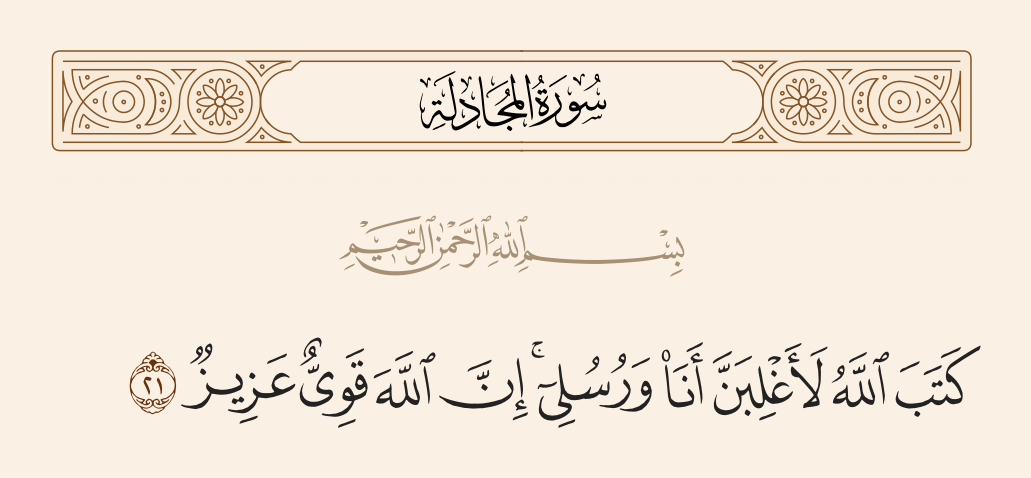 سُورَةُ المُجَادلَةِ
بِسْمِ ٱللَّهِ ٱلرَّحْمَٰنِ ٱلرَّحِيمِ
كَتَبَ ٱللَّهُ لَأَغْلِبَنَّ أَنَا۠ وَرُسُلِىٓ ۚ إِنَّ ٱللَّهَ قَوِىٌّ عَزِيزٌ ٢١